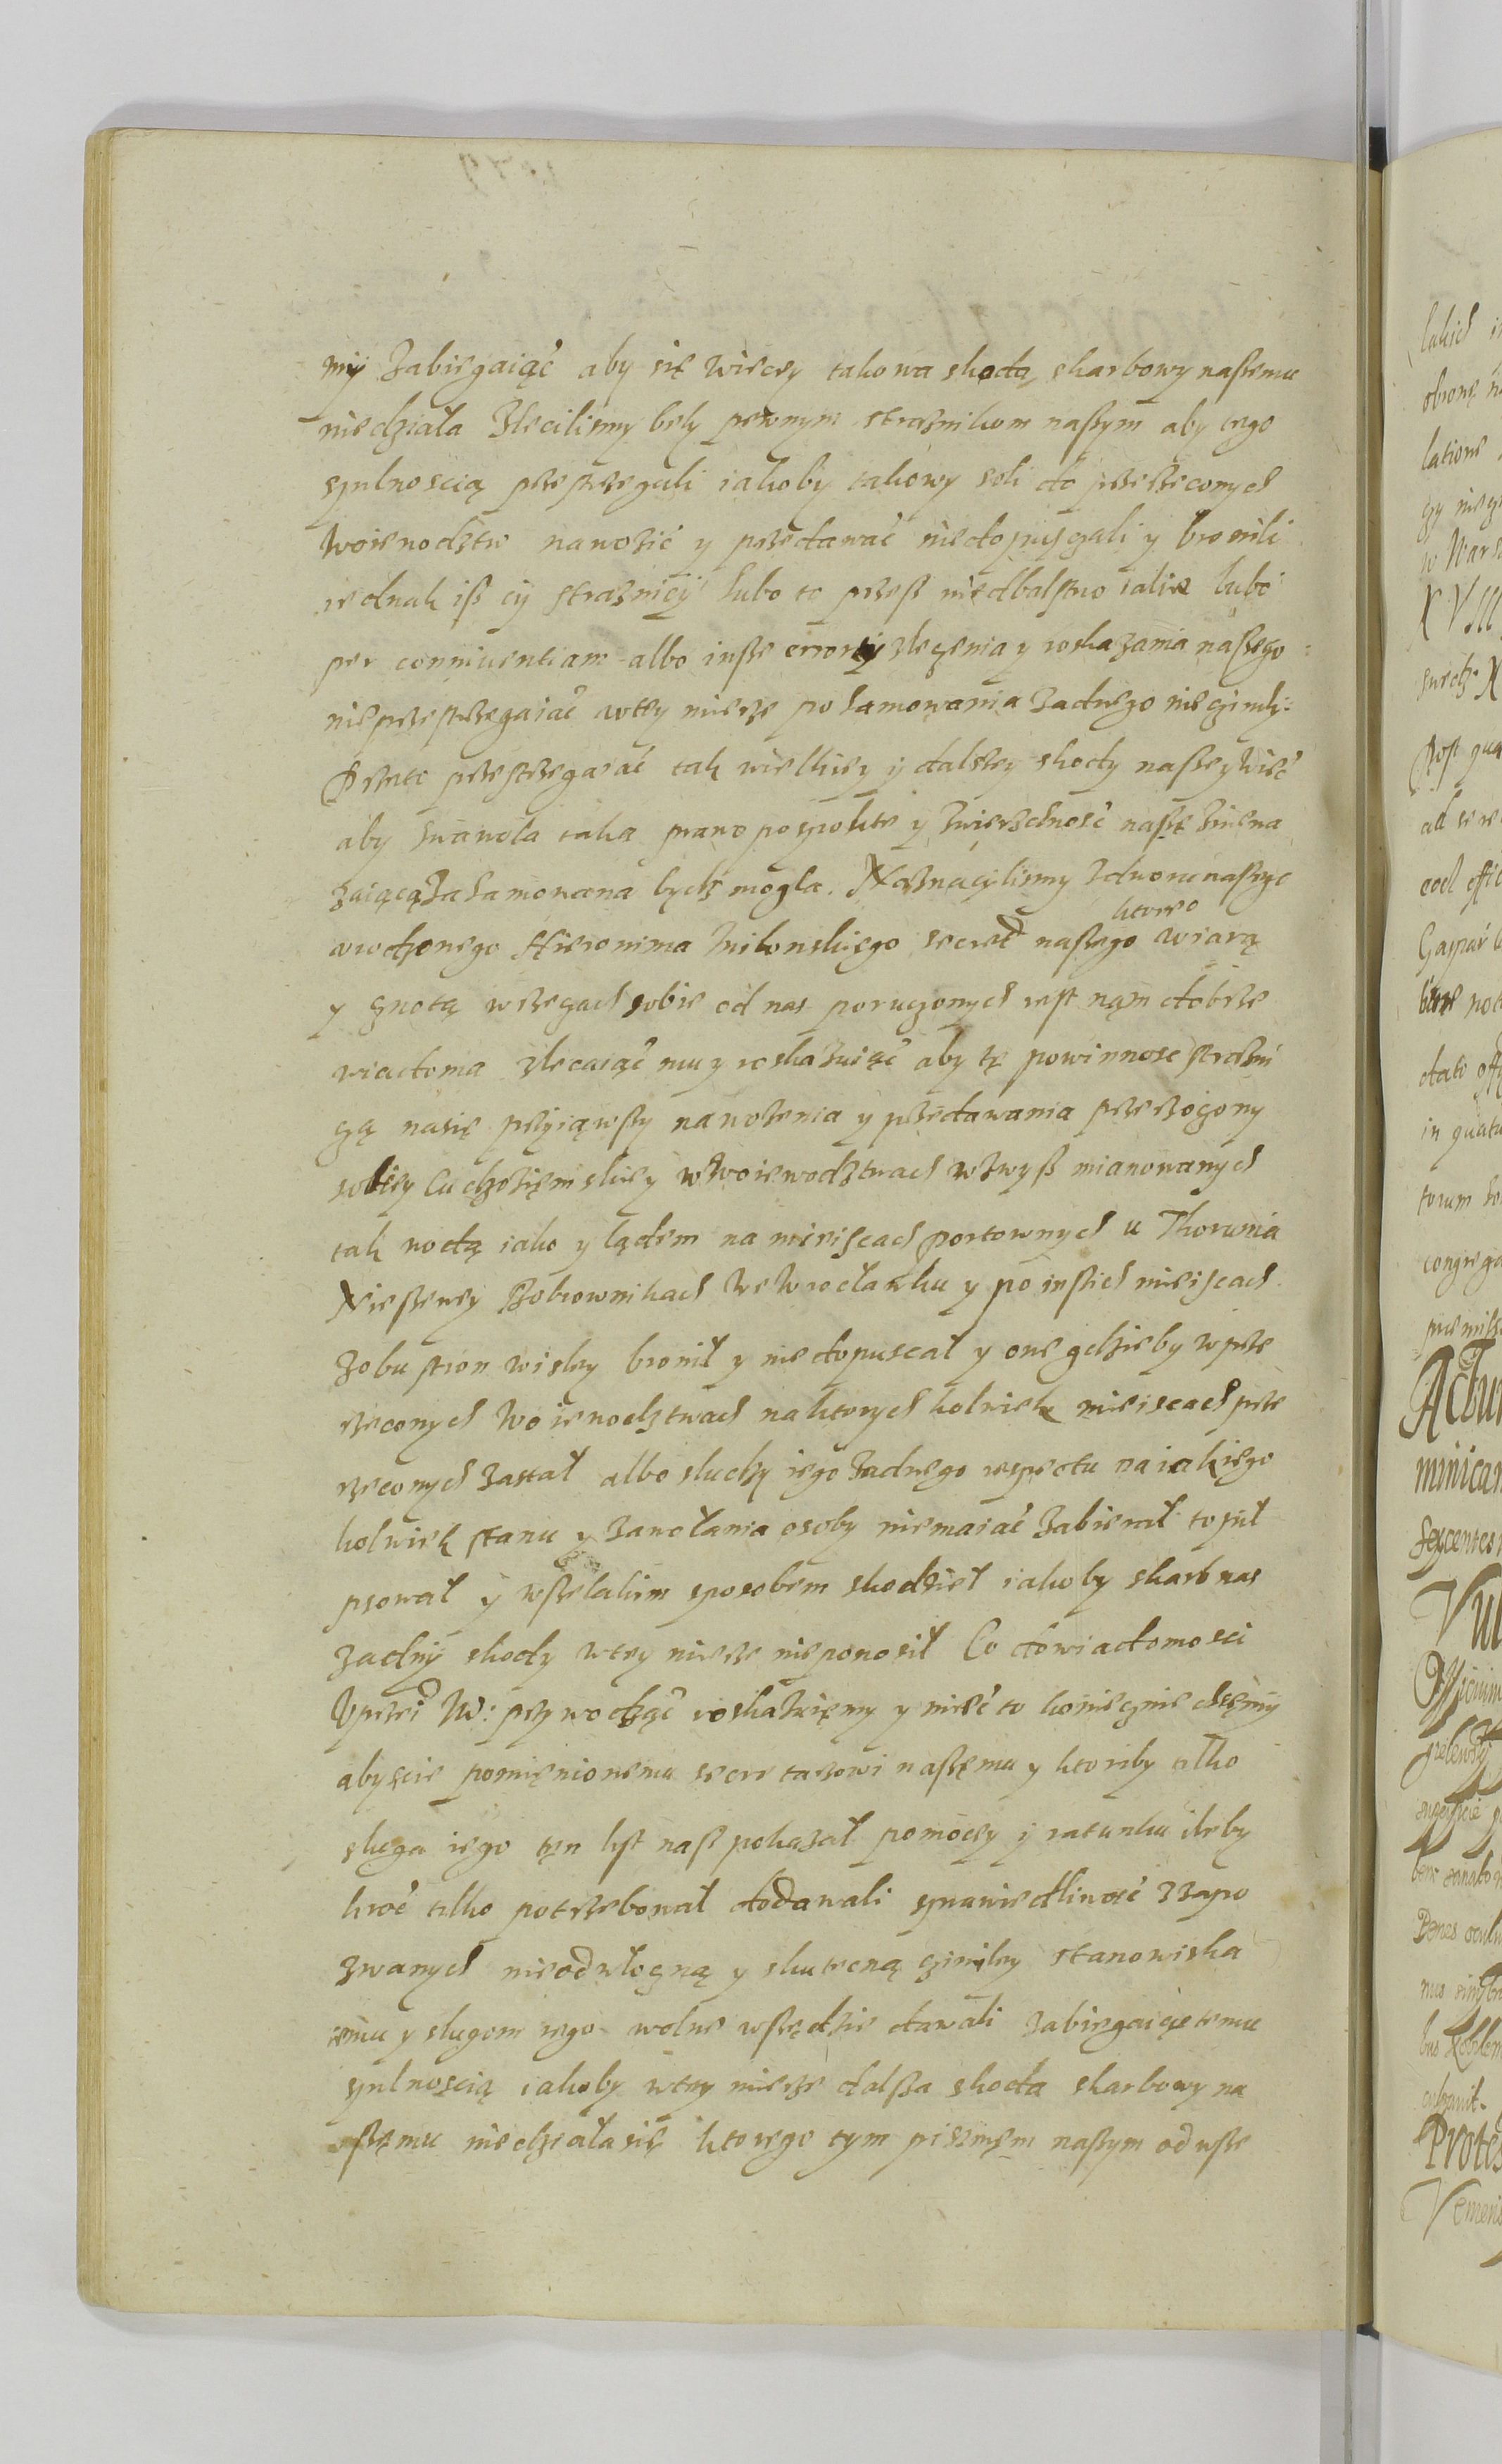 my Zabiegaiąć aby się wiecey takowa skodą skarbowy naßemu
niedziała Zlecilismy bely pewnym straznikom naßym aby tego
spilnoscią przestrzegali iakoby takowy soli do przerzeconych
woiewodztw nawozić y przedawać niedopusczali y bronili
iednak iß cy straznicy lubo to przeß niedbalstwo iakie lubo
per conniuentiam albo inße errory zleczenia y roskazania naßego
nieprzestrzegaiać wtey mierze pohamowania zadnego nieczinily
Przeto przestrzegaiać tak wielkiey y dalszey skody naßey wieć
aby swawola taka prawo pospolite y zwierzchność naßę zniewa
zaiącą Zahamowana bydź mogla. Naznaczylismy zdworu naszyc
urodzonego Hieronima Milonskiego secret naßego ktorego wiarą
y cznotą wrzeczach sobie od nas poruczonych iest nąm dobrze
wiadoma zlecaiąć mu y roskazuiąć aby tę powinnosc strazni
czą nasię przyiąwßy nawozenia y przedawania przerzoczony
soliey Cudzoziemskiey wwoiewodztwach wzwyß mianowanych
tak wodą iako y lądem na mieiscach portownych u Thorunia
Nießewy Bobrownikach We Wrocławku y po inßich mieiscach
zobu stron wisley bronił y niedopuscał y one gdzieby wprze
rzeconych woiewodztwach naktorych kolwiek mieiscach prze
rzeconych zastał albo sludzy iego Zadnego respectu na iakiego
kolwiek stanu y zawołania osoby niemaiać Zabierał topił
psował y wßelakim sposobem skodził iakoby skarb nas
zadny skody wtey mierze nieponosił Co dowiadomosci
Uprzei W: przywodząć roskazuięmy y mieć to koniecznie chcęmy
abyscie pomięnionemu secretarzowi naßęmu y ktoriby tilko
slugą iego tęn lyst naß pokazał pomocey y ratunku ileby
kroć tilko potrzebował dodawali sprawiedliwość Zzapo
zwanych nieodwłoczną y skuteczną czinily stanowiska
iemu y slugom iego wolne wßędzie dawali zabiegaiąc temu
spilnoscią iakoby wtey mierze dalßa skoda skarbowy na
ßęmu niedzieała się ktorego tym pisęmęm naßym od wße